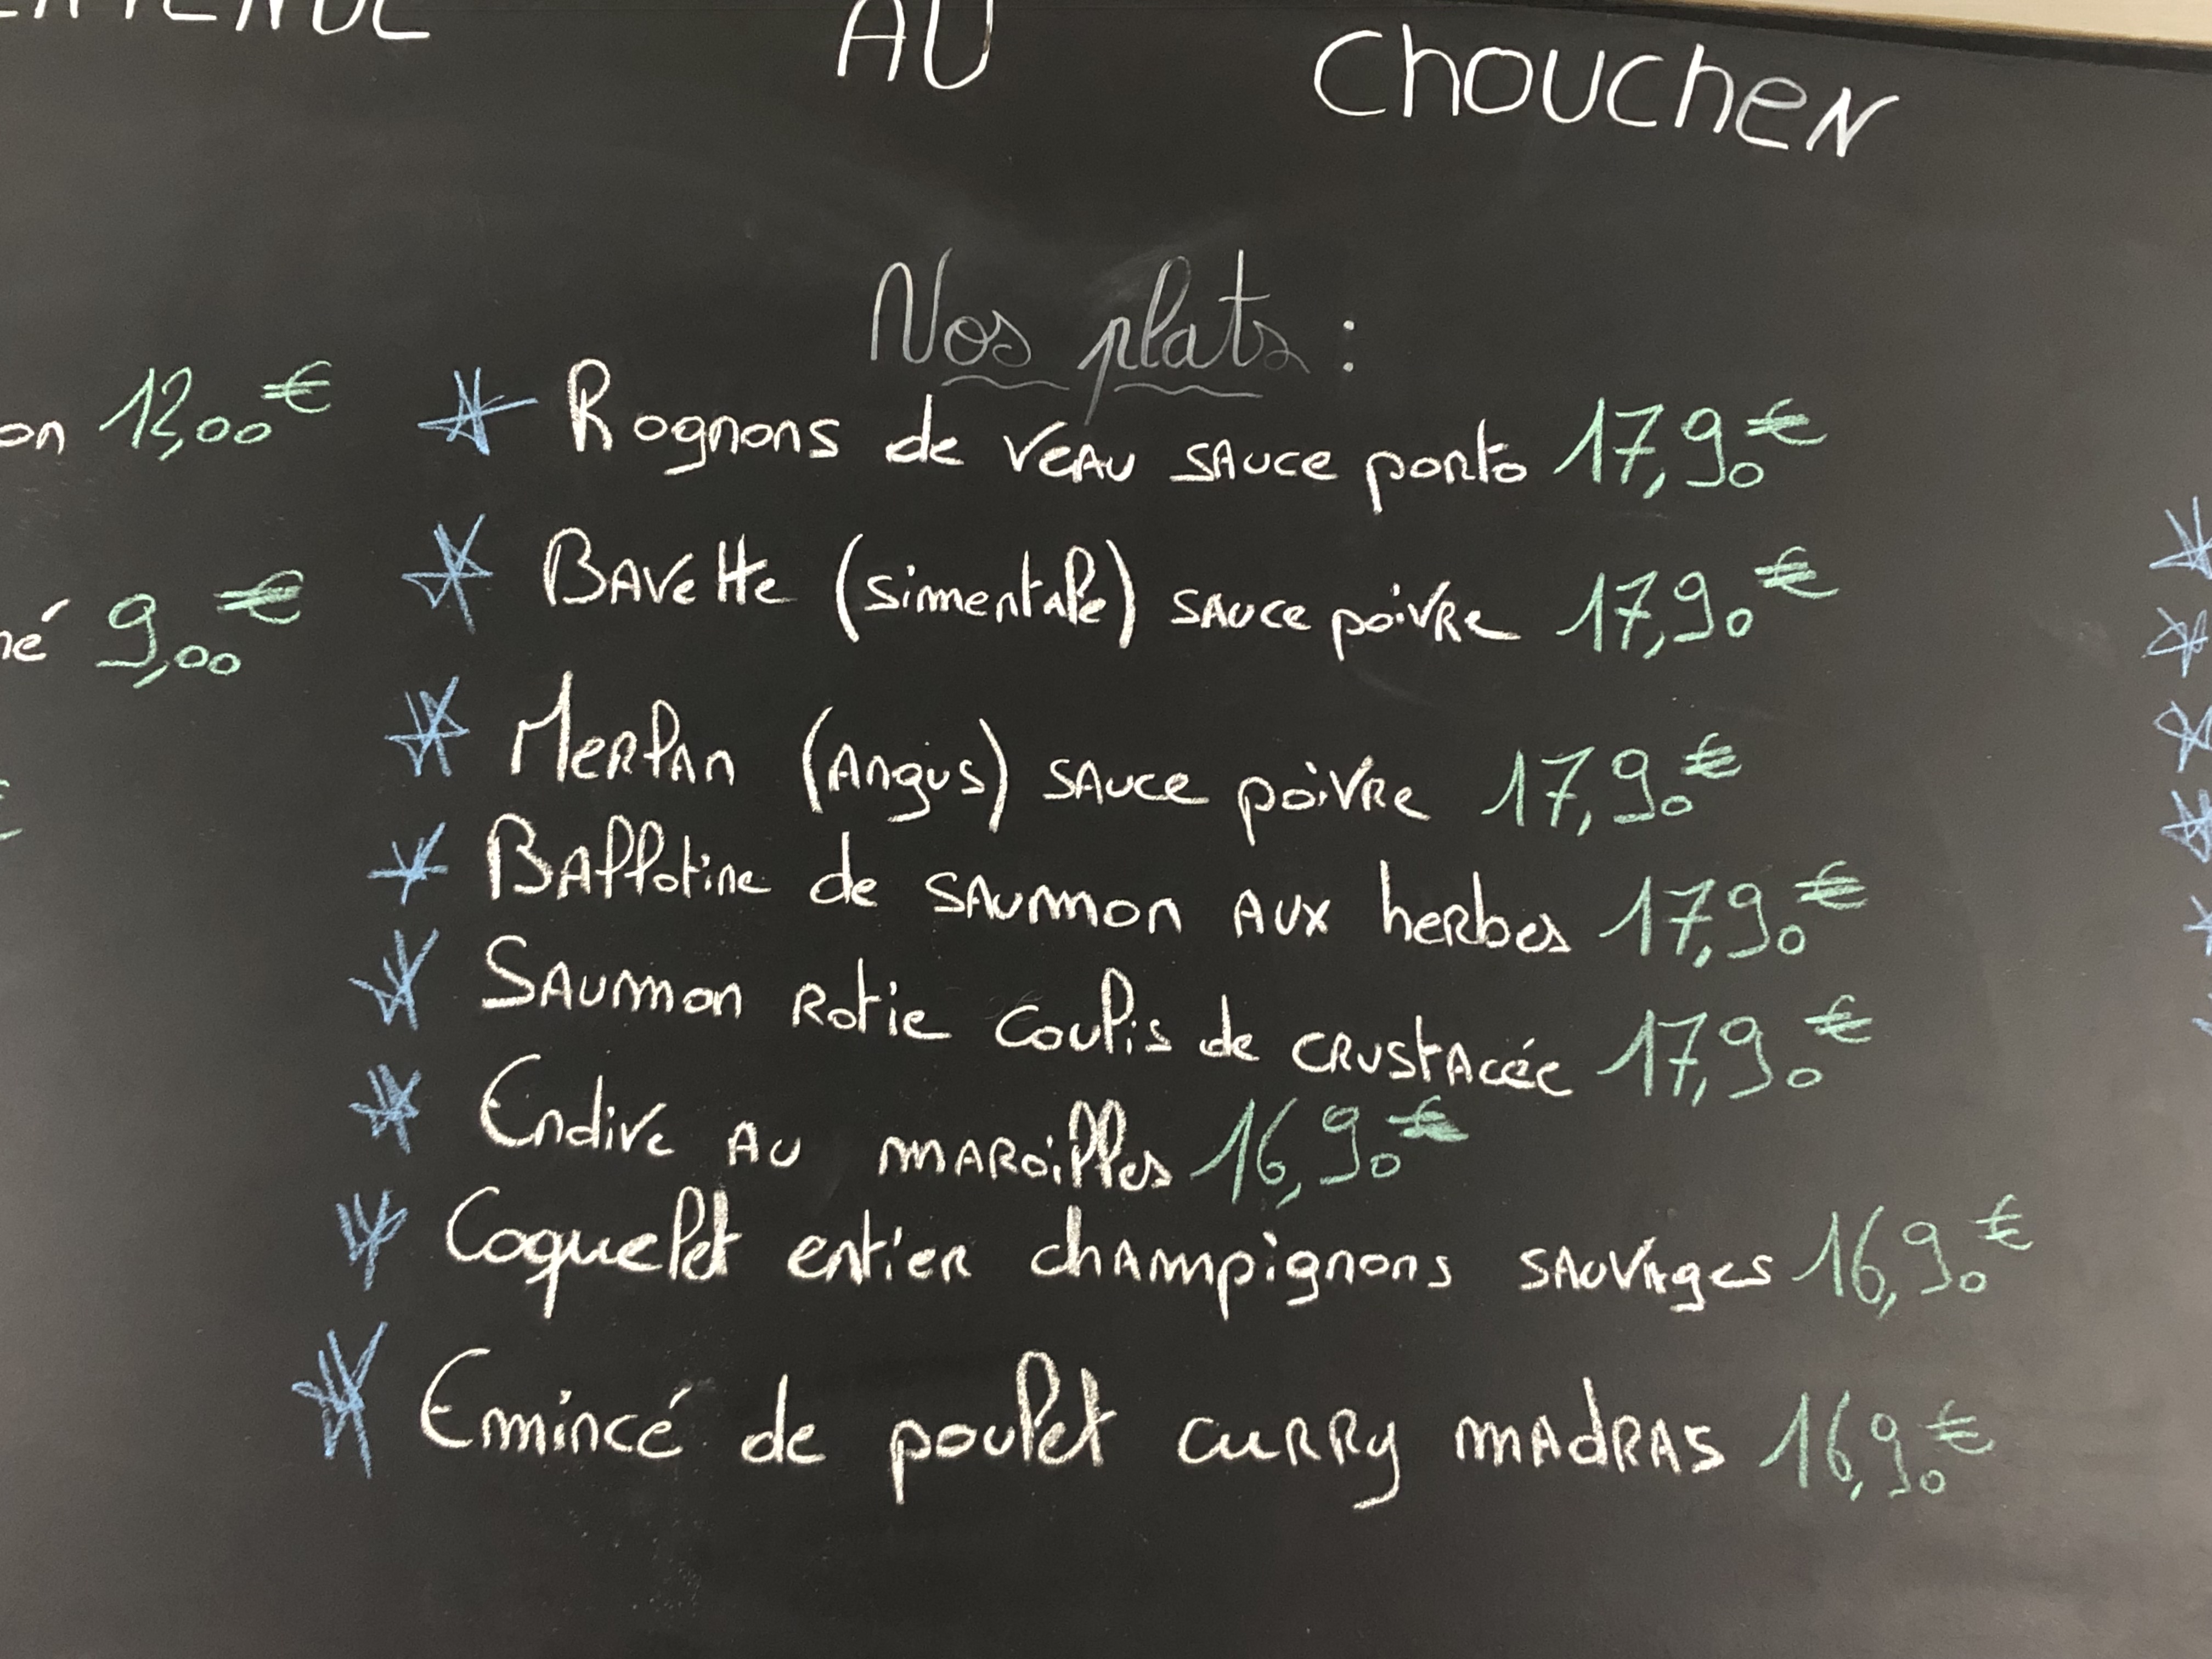 AU CHOUCHEN
Nos plats :
on 12,00€
* Rognons de veau sauce porto 17,90€
* Bavette (simentale) sauce poivre 17,90€
né 9,00€
* Merlan (Angus) sauce poivre 17,90€
* Ballotine de saumon aux herbes 17,90€
* Saumon rotie coulis de crustacée 17,90€
* Endive au maroilles 16,90€
* Coquelet entier champignons sauvages 16,90€
* Emincé de poulet curry madras 16,90€